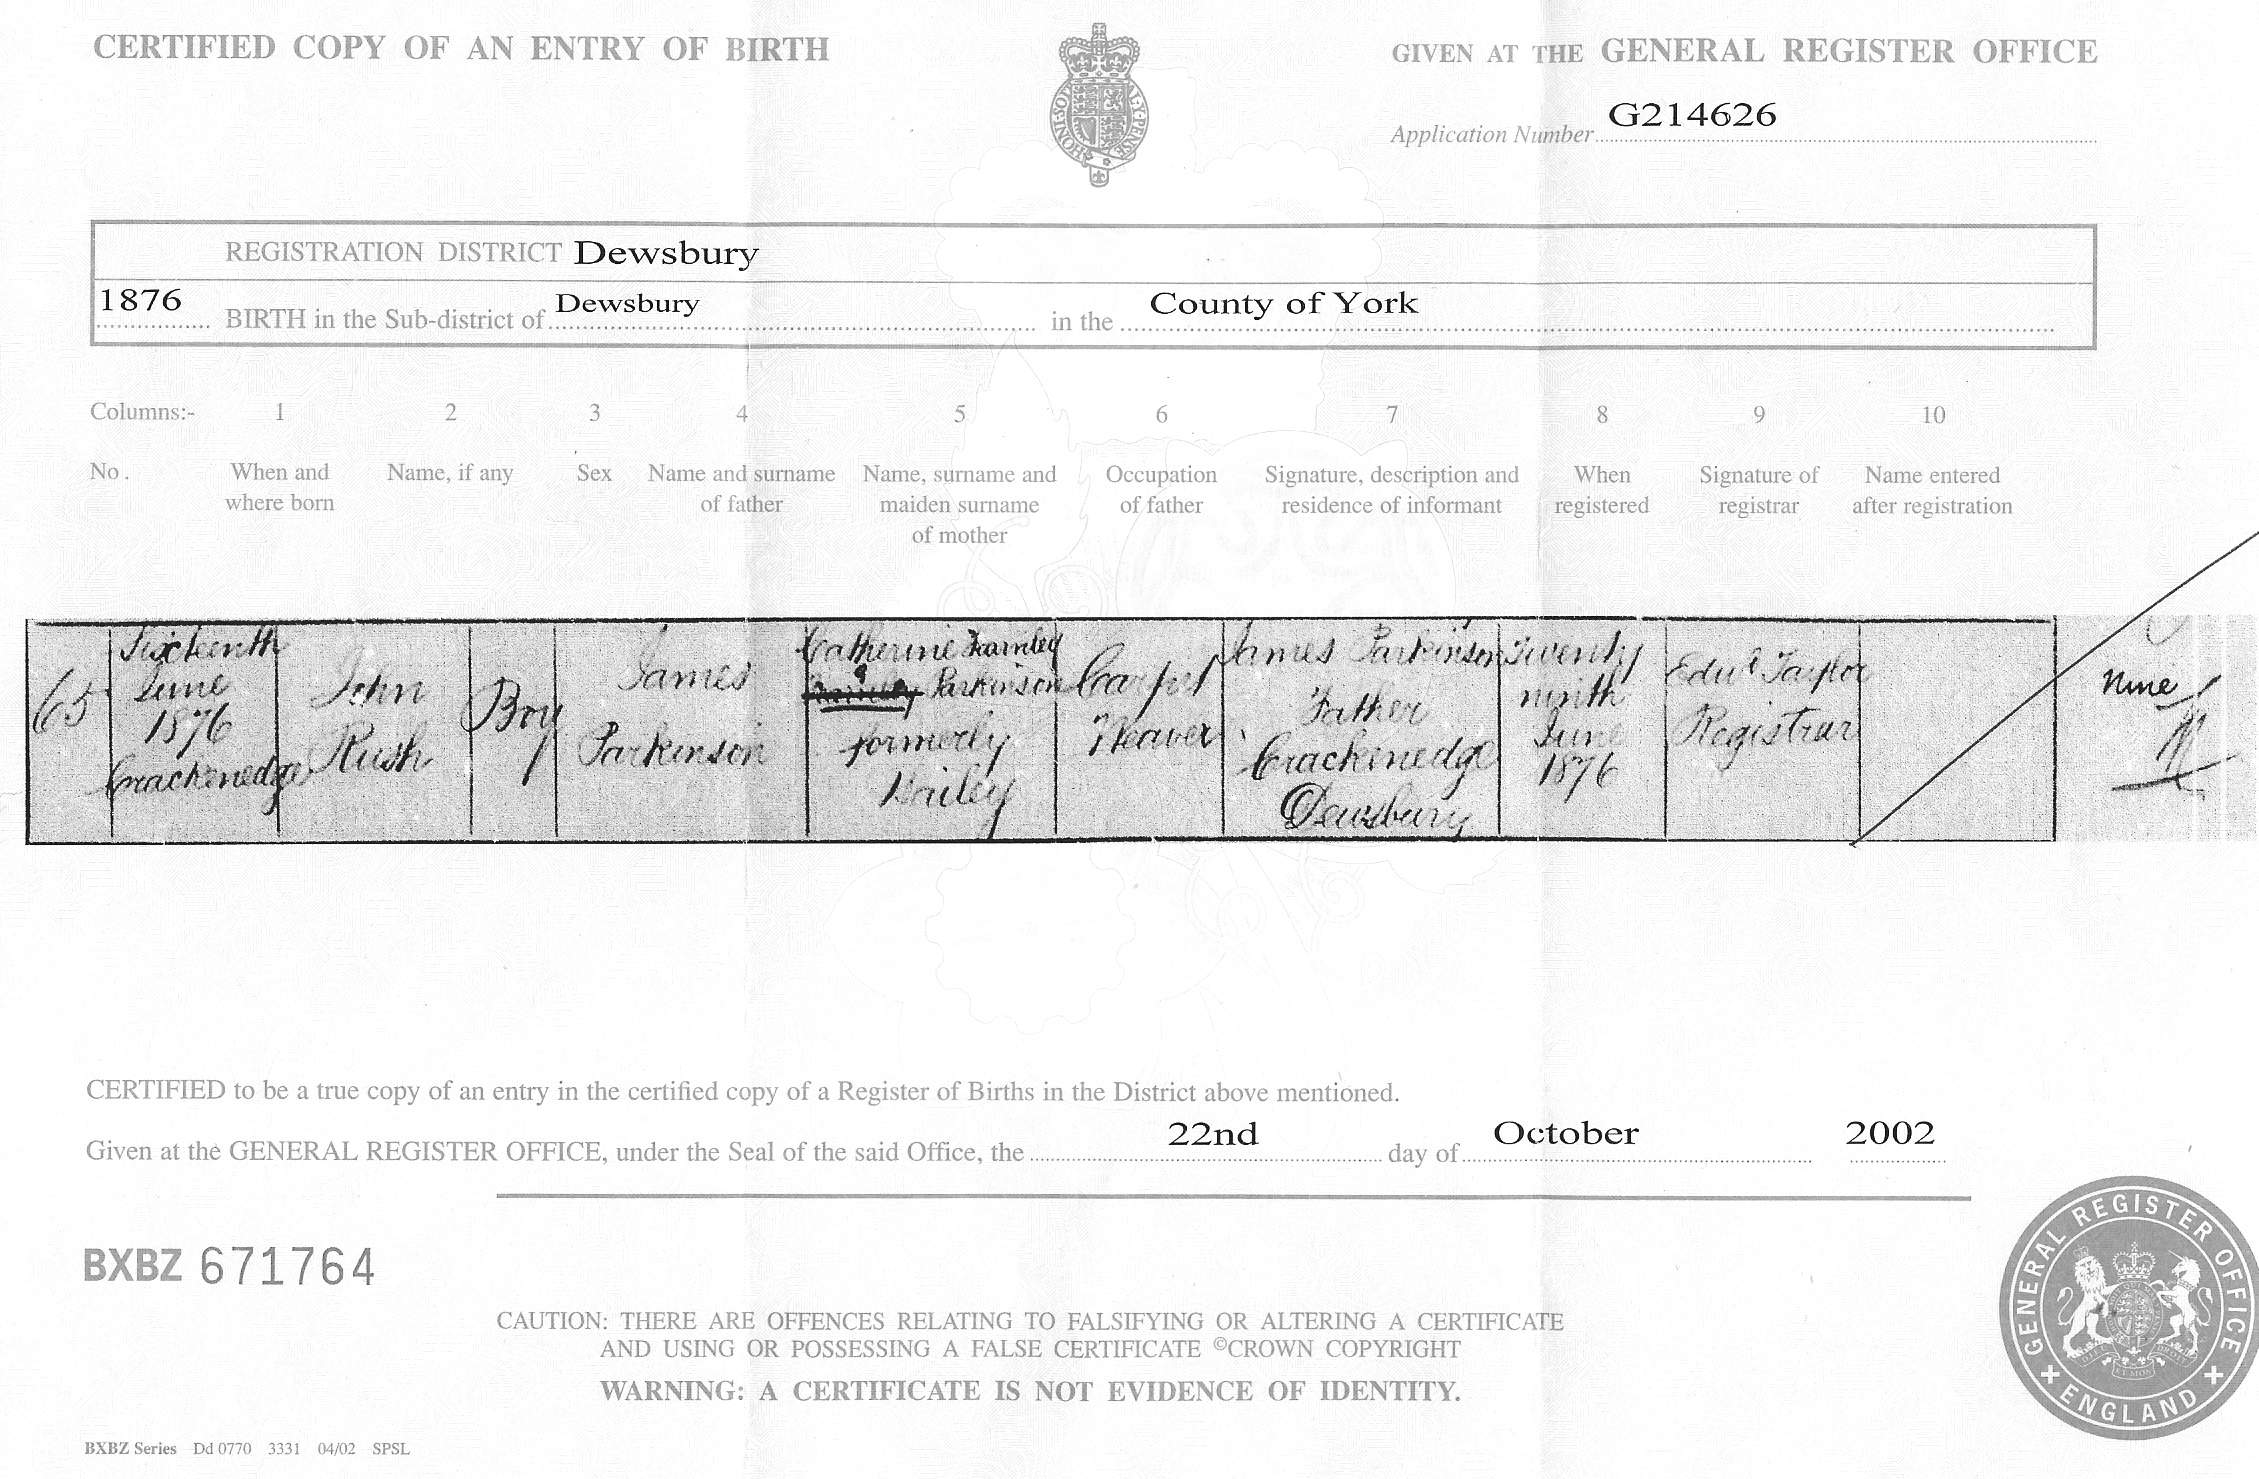 CERTIFIED COPY OF AN ENTRY OF BIRTH
GIVEN AT THE GENERAL REGISTER OFFICE
Application Number G214626
REGISTRATION DISTRICT Dewsbury
1876 BIRTH in the Sub-district of Dewsbury in the County of York
Columns:- 1 2 3 4 5 6 7 8 9 10
No. When and where born
Name, if any
Sex
Name and surname of father
Name, surname and maiden surname of mother
Occupation of father
Signature, description and residence of informant
When registered
Signature of registrar
Name entered after registration
65
Sixteenth
June
1876
Crackenedge
John
Rush
Boy
James
Parkinson
Catherine Farnley
Parkinson
formerly
Hailey
Carpet
Weaver
James Parkinson
Father
Crackenedge
Dewsbury
Twenty
ninth
June
1876
Edwd Taylor
Registrar
nine
CERTIFIED to be a true copy of an entry in the certified copy of a Register of Births in the District above mentioned.
Given at the GENERAL REGISTER OFFICE, under the Seal of the said Office, the 22nd day of October 2002
BXBZ 671764
CAUTION: THERE ARE OFFENCES RELATING TO FALSIFYING OR ALTERING A CERTIFICATE
AND USING OR POSSESSING A FALSE CERTIFICATE ©CROWN COPYRIGHT
WARNING: A CERTIFICATE IS NOT EVIDENCE OF IDENTITY.
BXBZ Series Dd 0770 3331 04/02 SPSL
GENERAL REGISTER OFFICE
ENGLAND